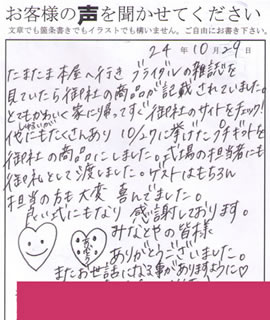 お客様の声を聞かせてください
文章でも箇条書きでもイラストでも構いません。ご自由にお書き下さい。
24年10月29日
たまたま本屋へ行きブライダルの雑誌を
見ていたら御社の商品が記載されていました。
とてもかわいく家に帰ってすぐ御社のサイトをチェック!
他にもたくさんあり10/27に挙げたプチギフトを
御社の商品にしました。式場の担当者にも
御礼として渡しました。ゲストはもちろん
担当の方も大変喜んでました。
良い式にもなり感謝しております。
みなとやの皆様
ありがとうございました。
またお世話になる事がありますように♡